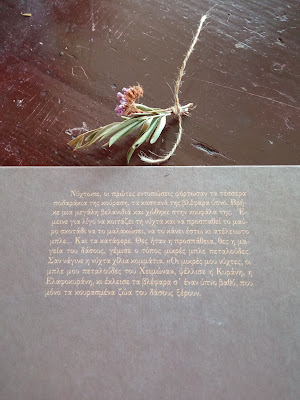 Νύχτωσε, οι πρώτες εντυπώσεις φόρτωσαν τα τέσσερα
ποδαράκια της κούραση, τα καστανά της βλέφαρα ύπνο. Βρή-
κε μια μεγάλη βελανιδιά και χώθηκε στην κουφάλα της. Έ-
μεινε για λίγο να κοιτάζει τη νύχτα και να προσπαθεί το μαύ-
ρο σκοτάδι να το μαλακώσει, να το κάνει έστω κι ατέλειωτο
μπλε... Και τα κατάφερε. Θες ήταν η προσπάθεια, θες η μα-
γεία του δάσους, γέμισε ο τόπος μικρές μπλε πεταλούδες.
Σαν νάγινε η νύχτα χίλια κομμάτια. «Οι μικρές μου νύχτες, οι
μπλε μου πεταλούδες του Χειμώνα», ψέλλισε η Κυράνη, η
Ελαφοκυράνη, κι έκλεισε τα βλέφαρα σ' έναν ύπνο βαθύ, που
μόνο τα κουρασμένα ζώα του δάσους ξέρουν.